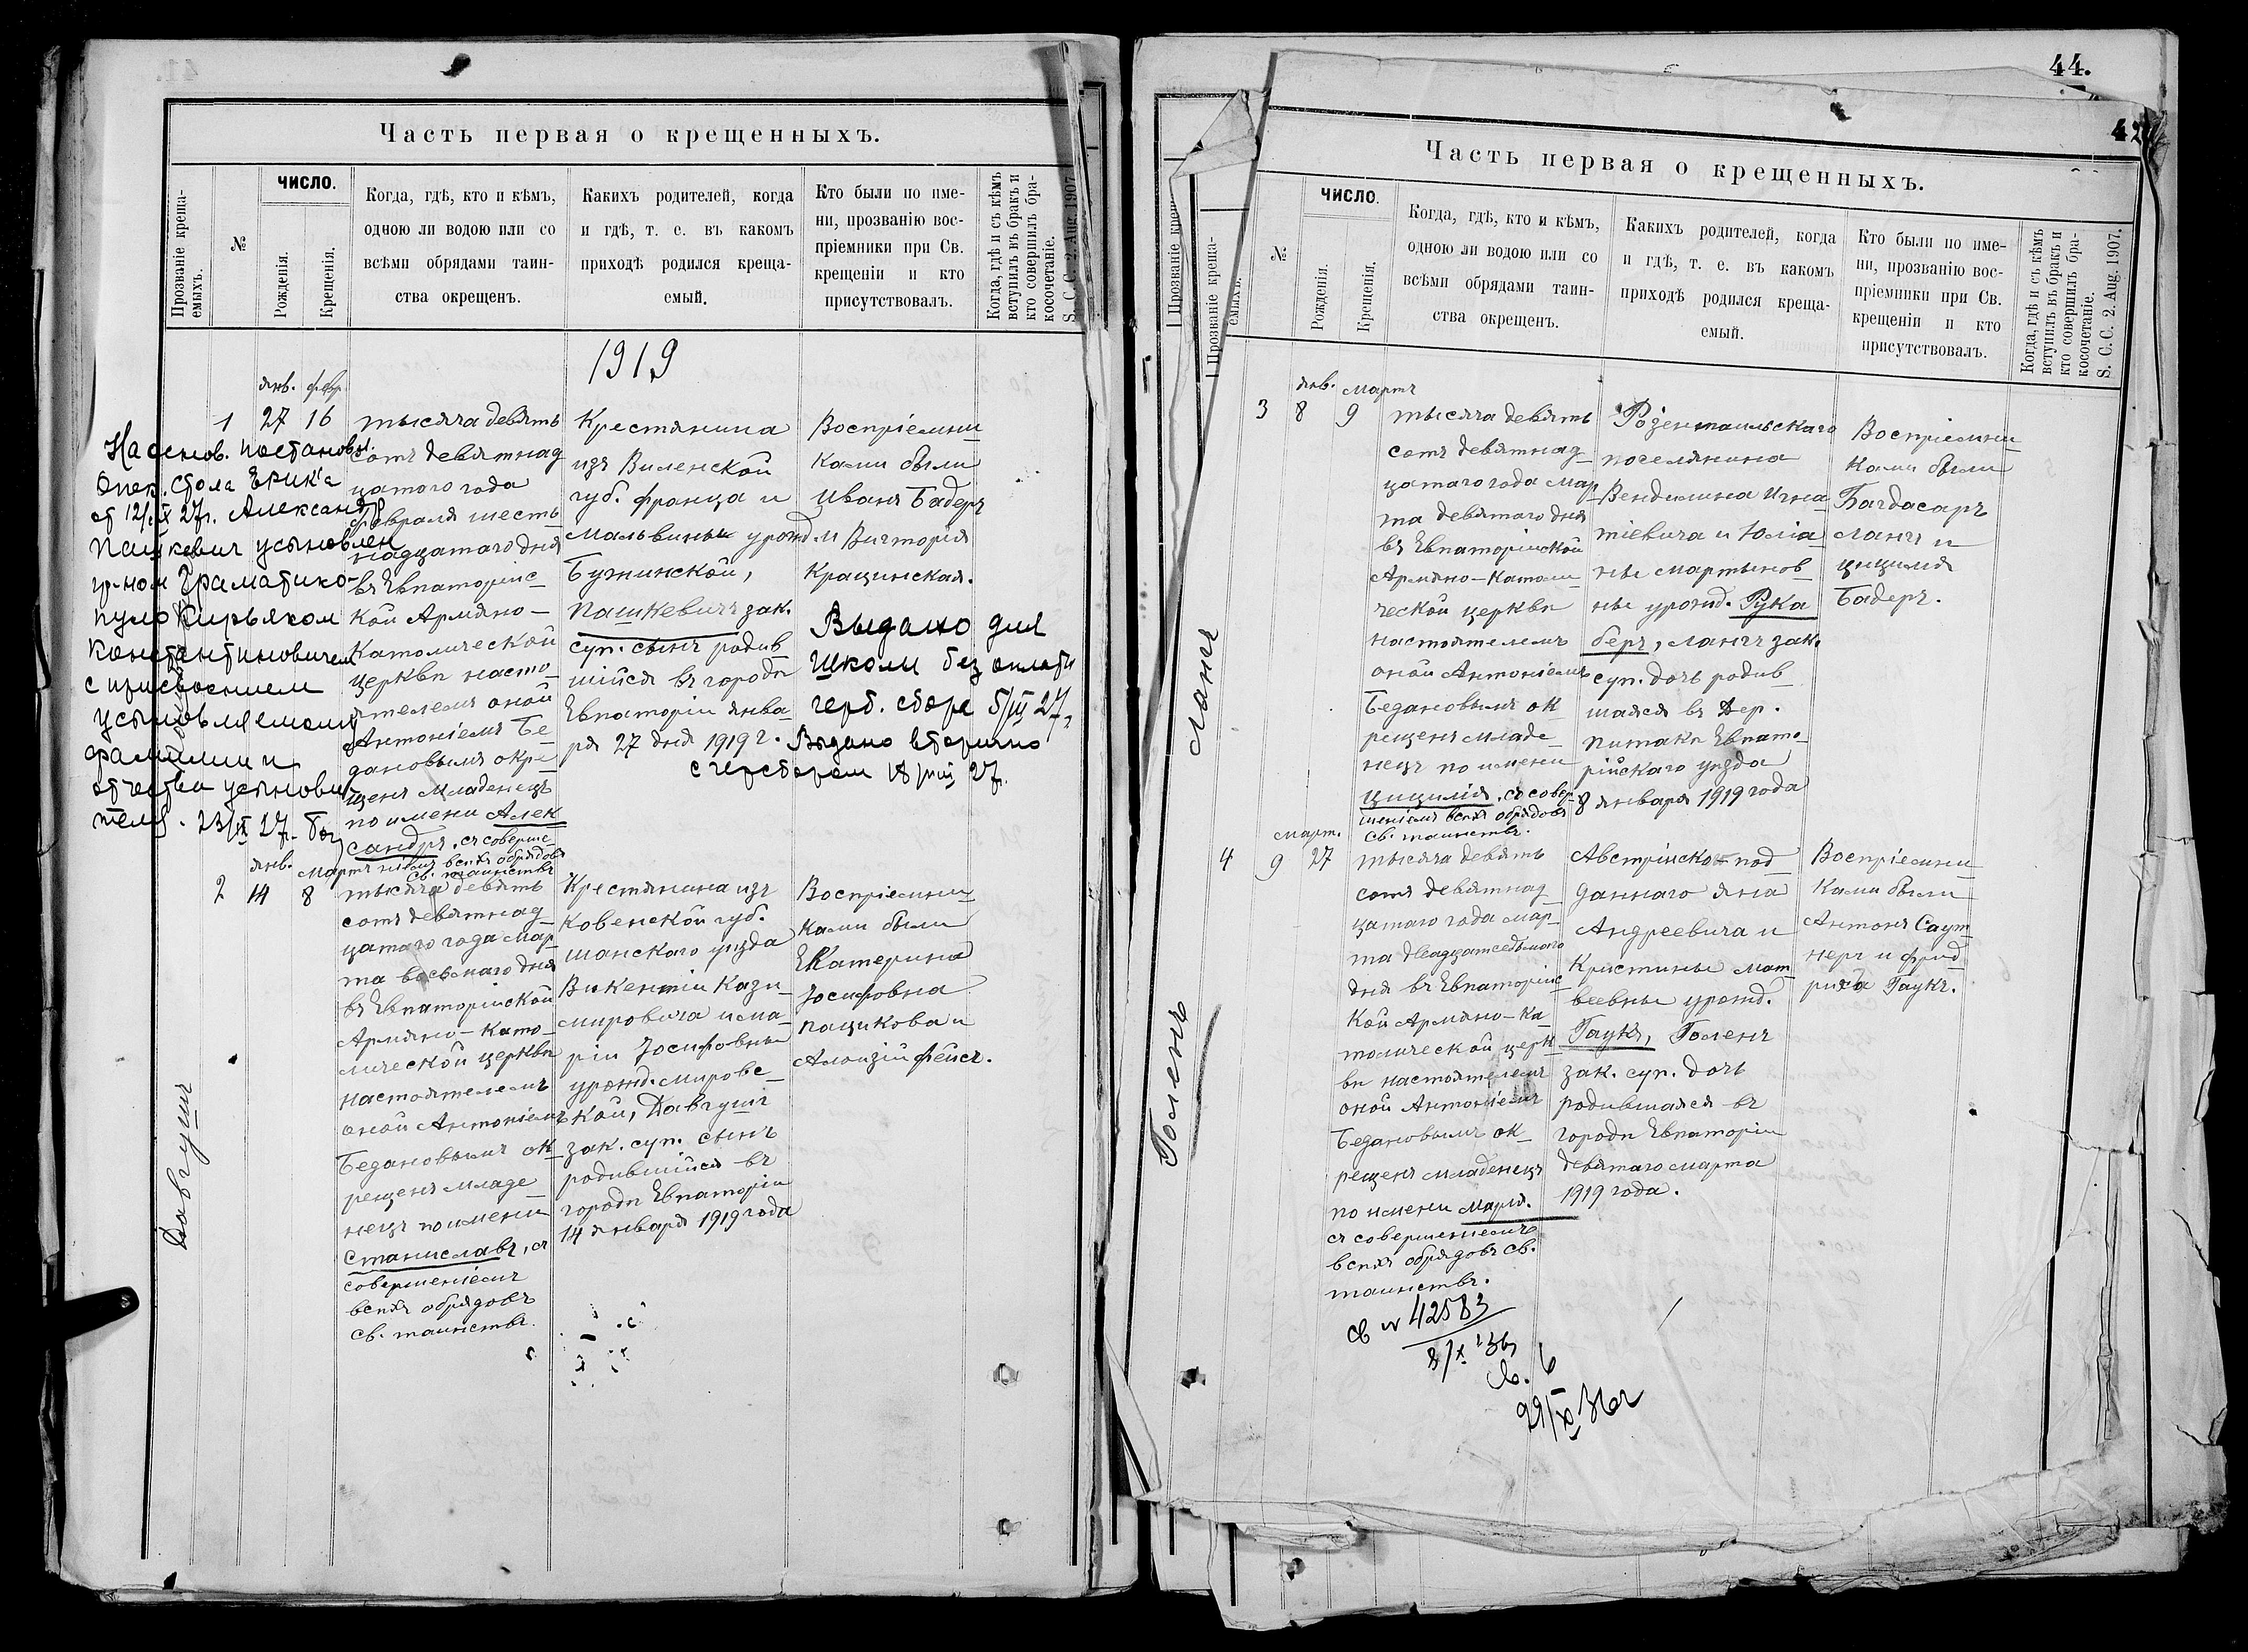 Часть первая о крещенныхъ.
Прозваніе креща-
емыхъ.
№
ЧИСЛО.
Рожденія.
Крещенія.
Когда, гдѣ, кто и кѣмъ,
одною ли водою или со
всѣми обрядами таин-
ства окрещенъ.
Какихъ родителей, когда
и гдѣ, т. е. въ какомъ
приходѣ родился креща-
емый.
Кто были по име-
ни, прозванію вос-
пріемники при Св.
крещеніи и кто
присутствовалъ.
Когда, гдѣ и съ кѣмъ
вступилъ въ бракъ и
кто совершилъ бра-
косочетаніе.
S. C. C. 2. Aug. 1907
1919
янв. февр.
1 27 16
На основ. постановл.
Опек. стола ЕРИК'а
от 12/IX 27г. Александр
Пашкевич усыновлен
гр-ном Граматико-
пуло Кирьяком
Константиновичем
с присвоением
усыновляемому
фамилии и
отчества усынови-
теля. 23/IX 27г.
тысяча девять
сотъ девятнад
цатого года
февраля шесть
надцатаго дня
въ Евпаторійс
кой Армяно-
Католической
церкви насто-
ятелемъ оной
Антоніемъ Бе-
дановымъ окре-
щенъ младенецъ
по имени Алек
сандръ, съ соверше-
ніемъ всѣхъ обрядовъ
св. таинствъ
Крестянина
изъ Виленской
губ. Франца и
Мальвины урожд.
Бужинской,
Пашкевичъ зак.
суп. сынъ родив
шійся въ городѣ
Евпаторіи янва-
ря 27 дня 1919 г.
Воспріемни-
ками были
Иванъ Бадеръ
и Викторія
Крацинская.
Выдано для
школы без оплаты
герб. сбора
Выдано вторично
янв. мартъ
2 14 8
Довгушъ
тысяча девять
сотъ девятнад-
цатаго года мар
та восьмаго дня
въ Евпаторійской
Армяно-Като-
лической церкви
настоятелемъ
оной Антоніемъ
Бедановымъ ок-
рещенъ младе
нецъ по имени
Станиславъ, съ
совершеніемъ
всѣхъ обрядовъ
св. таинствъ.
Крестянина изъ
Ковенской губ.
шанскаго уѣзда
Викентія Кази-
мировича и Ма-
ріи Іосифовны
урожд. Мировс-
кой, Давгушъ
зак. суп. сынъ
родившійся въ
городѣ Евпаторіи
14 января 1919 года
Воспріемни-
ками были
Екатерина
Іосифовна
Пацикова и
Алоизій Фейст.
44.
42
Часть первая о крещенныхъ.
Прозваніе креща-
емыхъ.
№
ЧИСЛО.
Рожденія.
Крещенія.
Когда, гдѣ, кто и кѣмъ,
одною ли водою или со
всѣми обрядами таин-
ства окрещенъ.
Какихъ родителей, когда
и гдѣ, т. е. въ какомъ
приходѣ родился креща-
емый.
Кто были по име-
ни, прозванію вос-
пріемники при Св.
крещеніи и кто
присутствовалъ.
Когда, гдѣ и съ кѣмъ
вступилъ въ бракъ и
кто совершилъ бра-
косочетаніе.
S. C. C. 2. Aug. 1907.
янв. мартъ
3 8 9
Лангъ
тысяча девять
сотъ девятнад-
цатаго года мар
та девятаго дня
въ Евпаторійской
Армяно-Католи-
ческой церкви
настоятелемъ
оной Антоніемъ
Бедановымъ ок
рещенъ младе-
нецъ по имени
Цицилія, съ совер-
шеніемъ всѣхъ обрядовъ
св. таинствъ.
Розентальскаго
поселянина
Венделина Игна
тіевича и Юліа-
ны Мартынов
ны урожд. Рука
беръ, Лангъ зак.
суп. дочь родив-
шаяся въ дер.
Китакъ Евпато-
рійскаго уѣзда
8 января 1919 года
Воспріемни-
ками были
Багдасаръ
Лангъ и
Цицилія
Бадеръ.
март.
4 9 27
Голенъ
тысяча девять
сотъ девятнад-
цатаго года мар-
та двадцатседьмого
дня въ Евпаторійс-
кой Армяно-ка-
толической церк
ви настоятелемъ
оной Антоніемъ
Бедановымъ ок-
рещенъ младенецъ
по имени Марія.
съ совершеніемъ
всѣхъ обрядовъ св.
таинствъ.
Австрійско-под
даннаго Яна
Андреевича и
Кристины Мат
веевны урожд.
Гаукъ, Голенъ
зак. суп. дочь
родившаяся въ
городѣ Евпаторіи
девятаго марта
1919 года.
Воспріемни-
ками были
Антонъ Саут-
неръ и Фрид
риха Гаукъ.
св № 42583